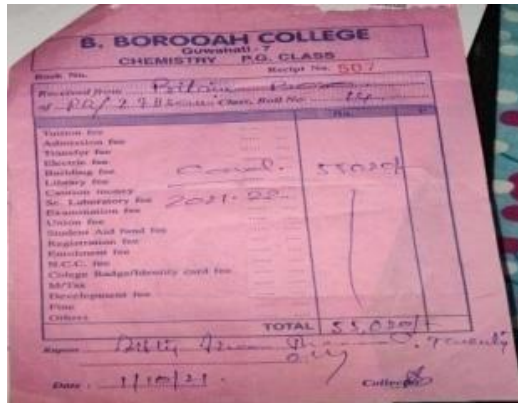 B. BOROOAH COLLEGE
Guwahati - 7
CHEMISTRY P.G. CLASS
Book No. Recipt No. 507
Received from
of Class, Roll No 14
Rs. P.
Tuition fee
Admission fee
Transfer fee
Electric fee
Building fee
Library fee
Caution money
Sc. Laboratory fee 2021-22
Examination fee
Union fee
Student Aid Fund fee
Registration fee
Enrolment fee
N.C.C. fee
College Badge/Identity card fee
M/Tax
Development fee
Fine
Others
TOTAL
Rupees
Date : 1/10/21.
Collector